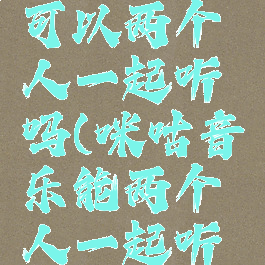 可以两个
人一起听
吗(咪咕音
乐能两个
人一起听